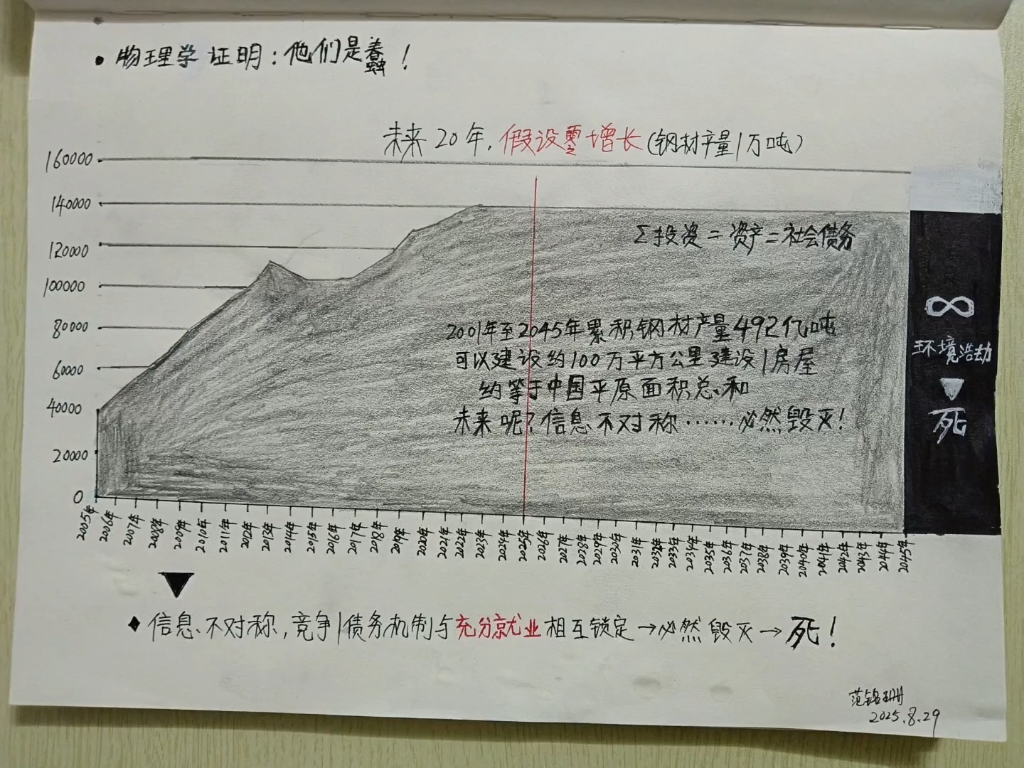 • 物理学证明:他们是蠢!
未来20年,假设零增长(钢材产量|万吨)
160000
140000
120000
100000
80000
60000
40000
20000
0
Σ投资=资产=社会债务
2001年至2045年累积钢材产量492亿吨
可以建设约100万平方公里建设|房屋
约等于中国平原面积总和
未来呢?信息不对称……必然毁灭!
∞
环境浩劫
▼
死
2005年 2006年 2007年 2008年 2009年
▼
◆ 信息不对称,竞争|债务机制与充分就业相互锁定→必然毁灭→死!
2025.8.29